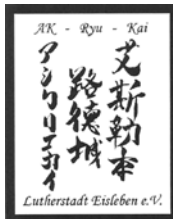 AK - Ryu - Kai
艾斯勒本
路德城
アシワリュウカイ
Lutherstadt Eisleben e.V.